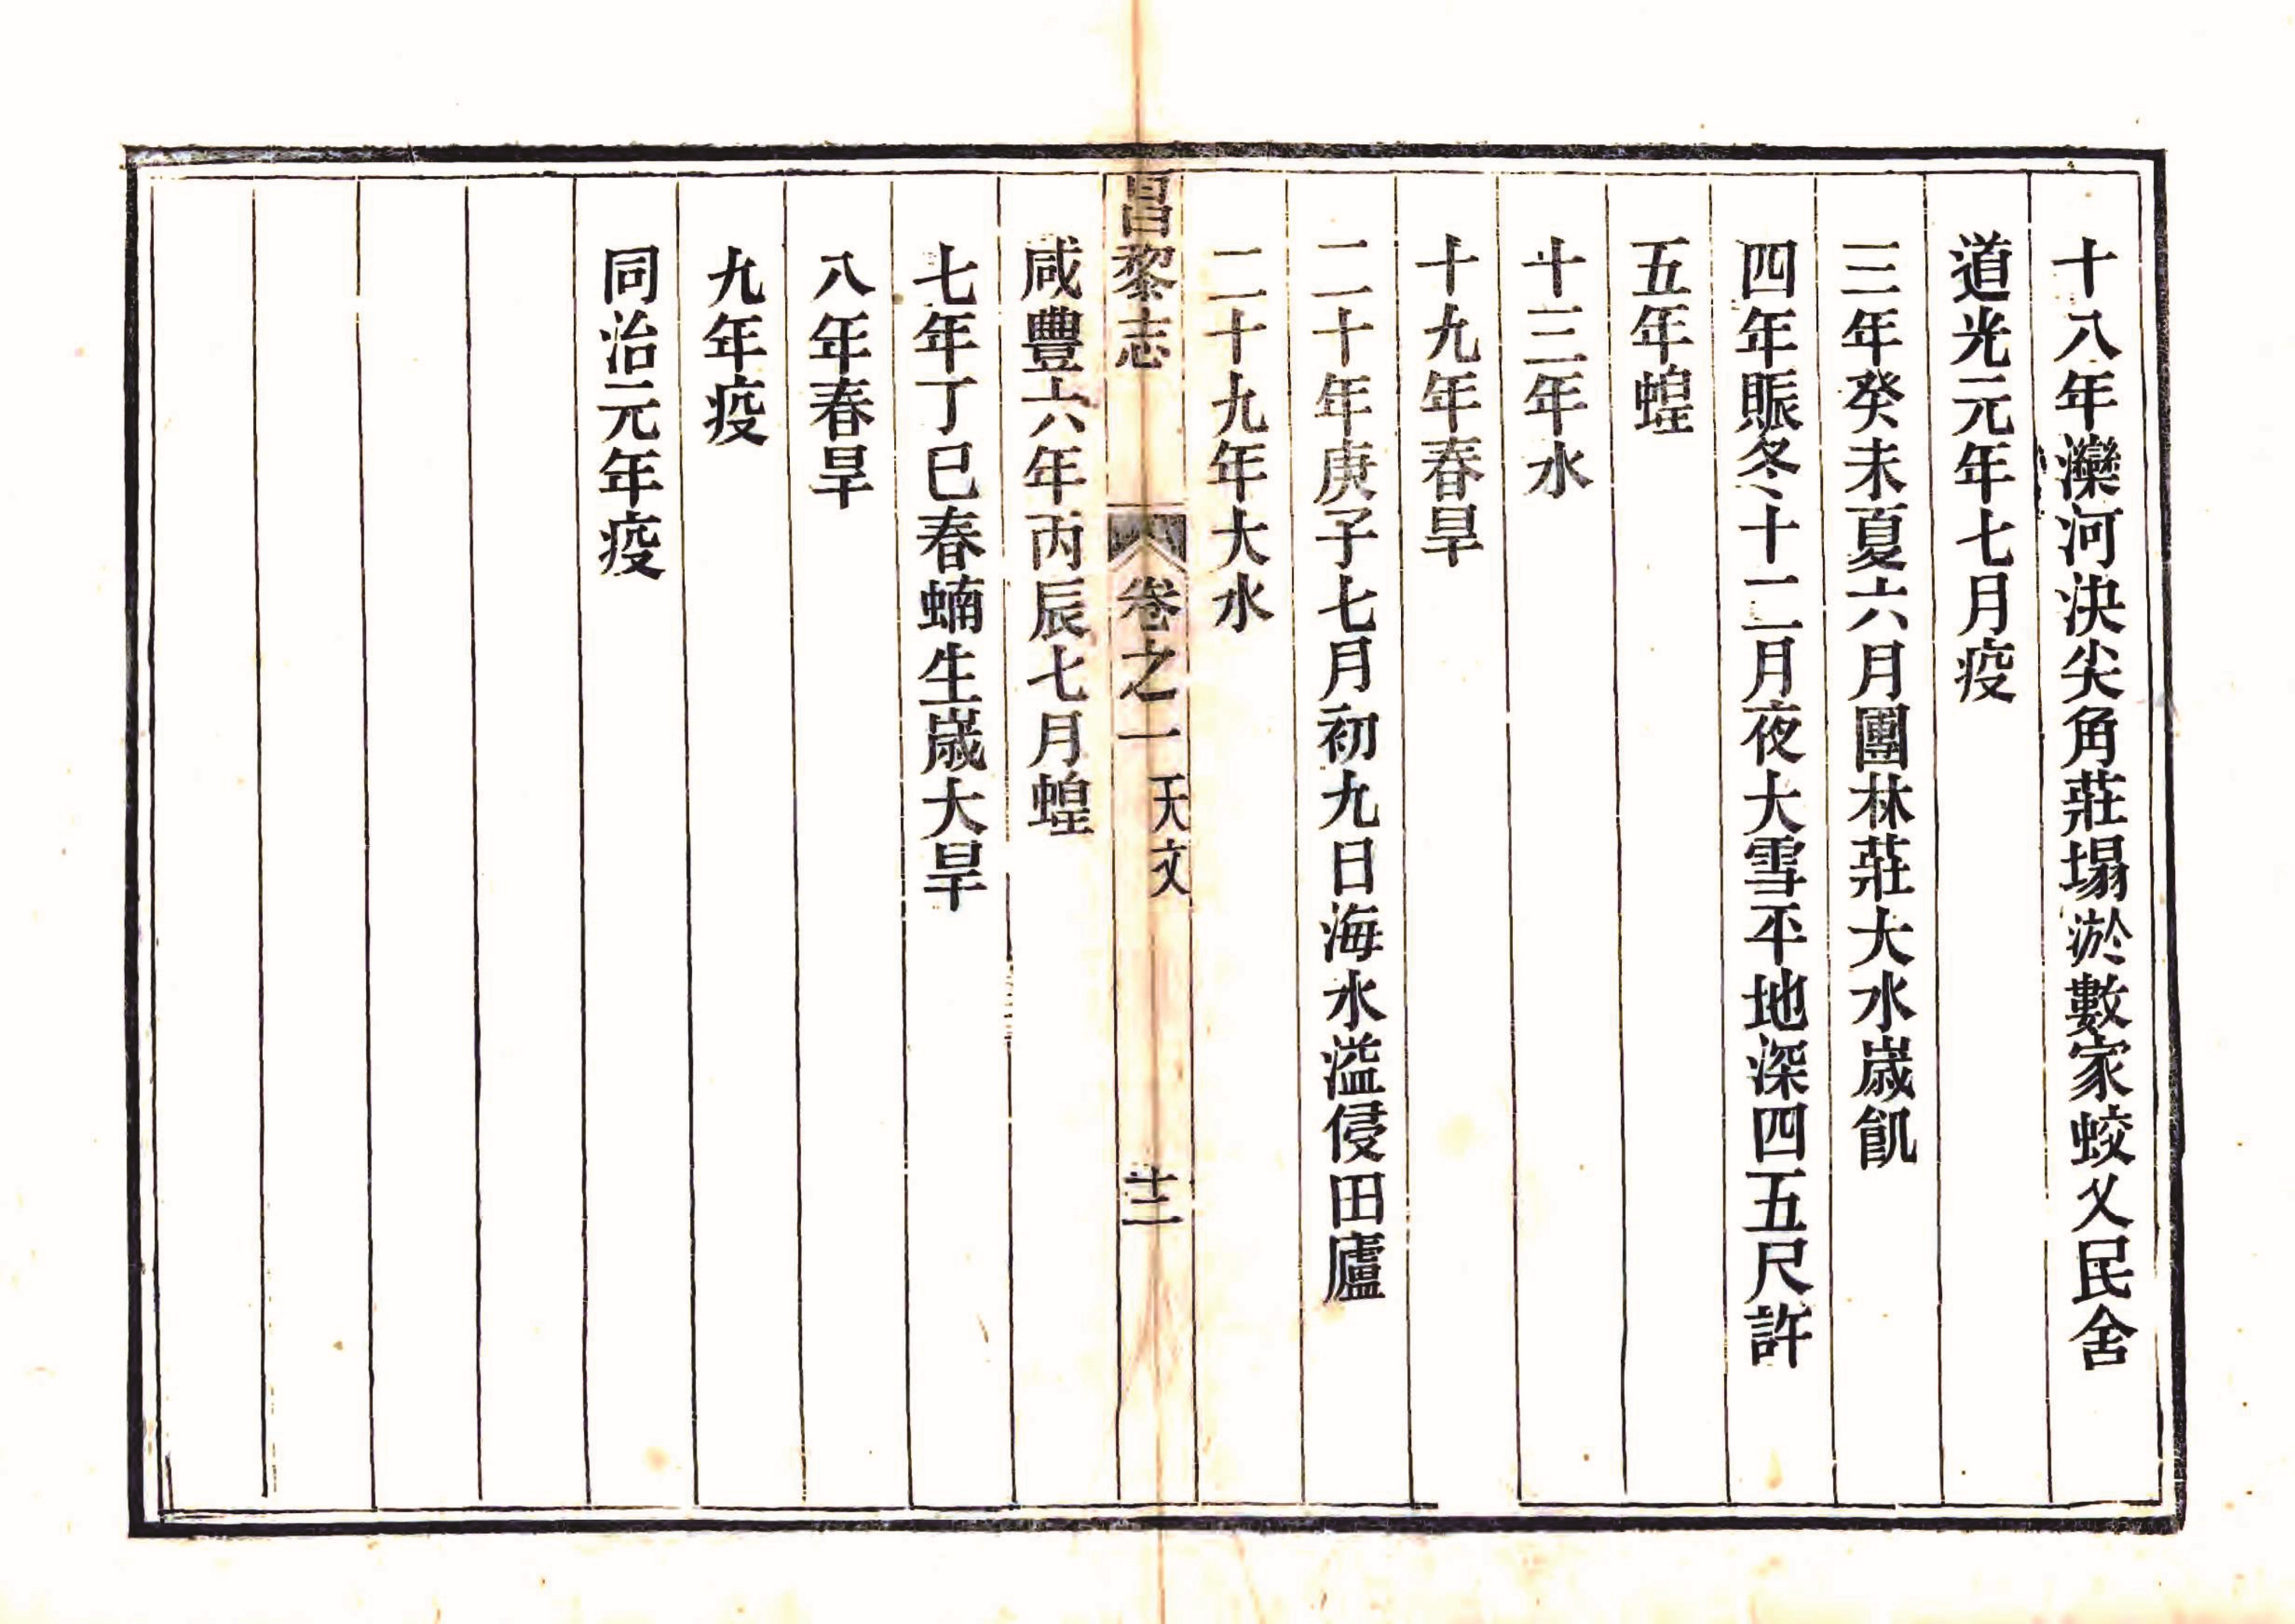 十八年灤河決尖角莊塌淤數家蛟乂民舍
道光元年七月疫
三年癸未夏六月團林莊大水歲飢
四年賑冬十二月夜大雪平地深四五尺許
五年蝗
十三年水
十九年春旱
二十年庚子七月初九日海水溢侵田廬
二十九年大水
昌黎志 卷之一 天文 十二
咸豐六年丙辰七月蝗
七年丁巳春蝻生歲大旱
八年春旱
九年疫
同治元年疫